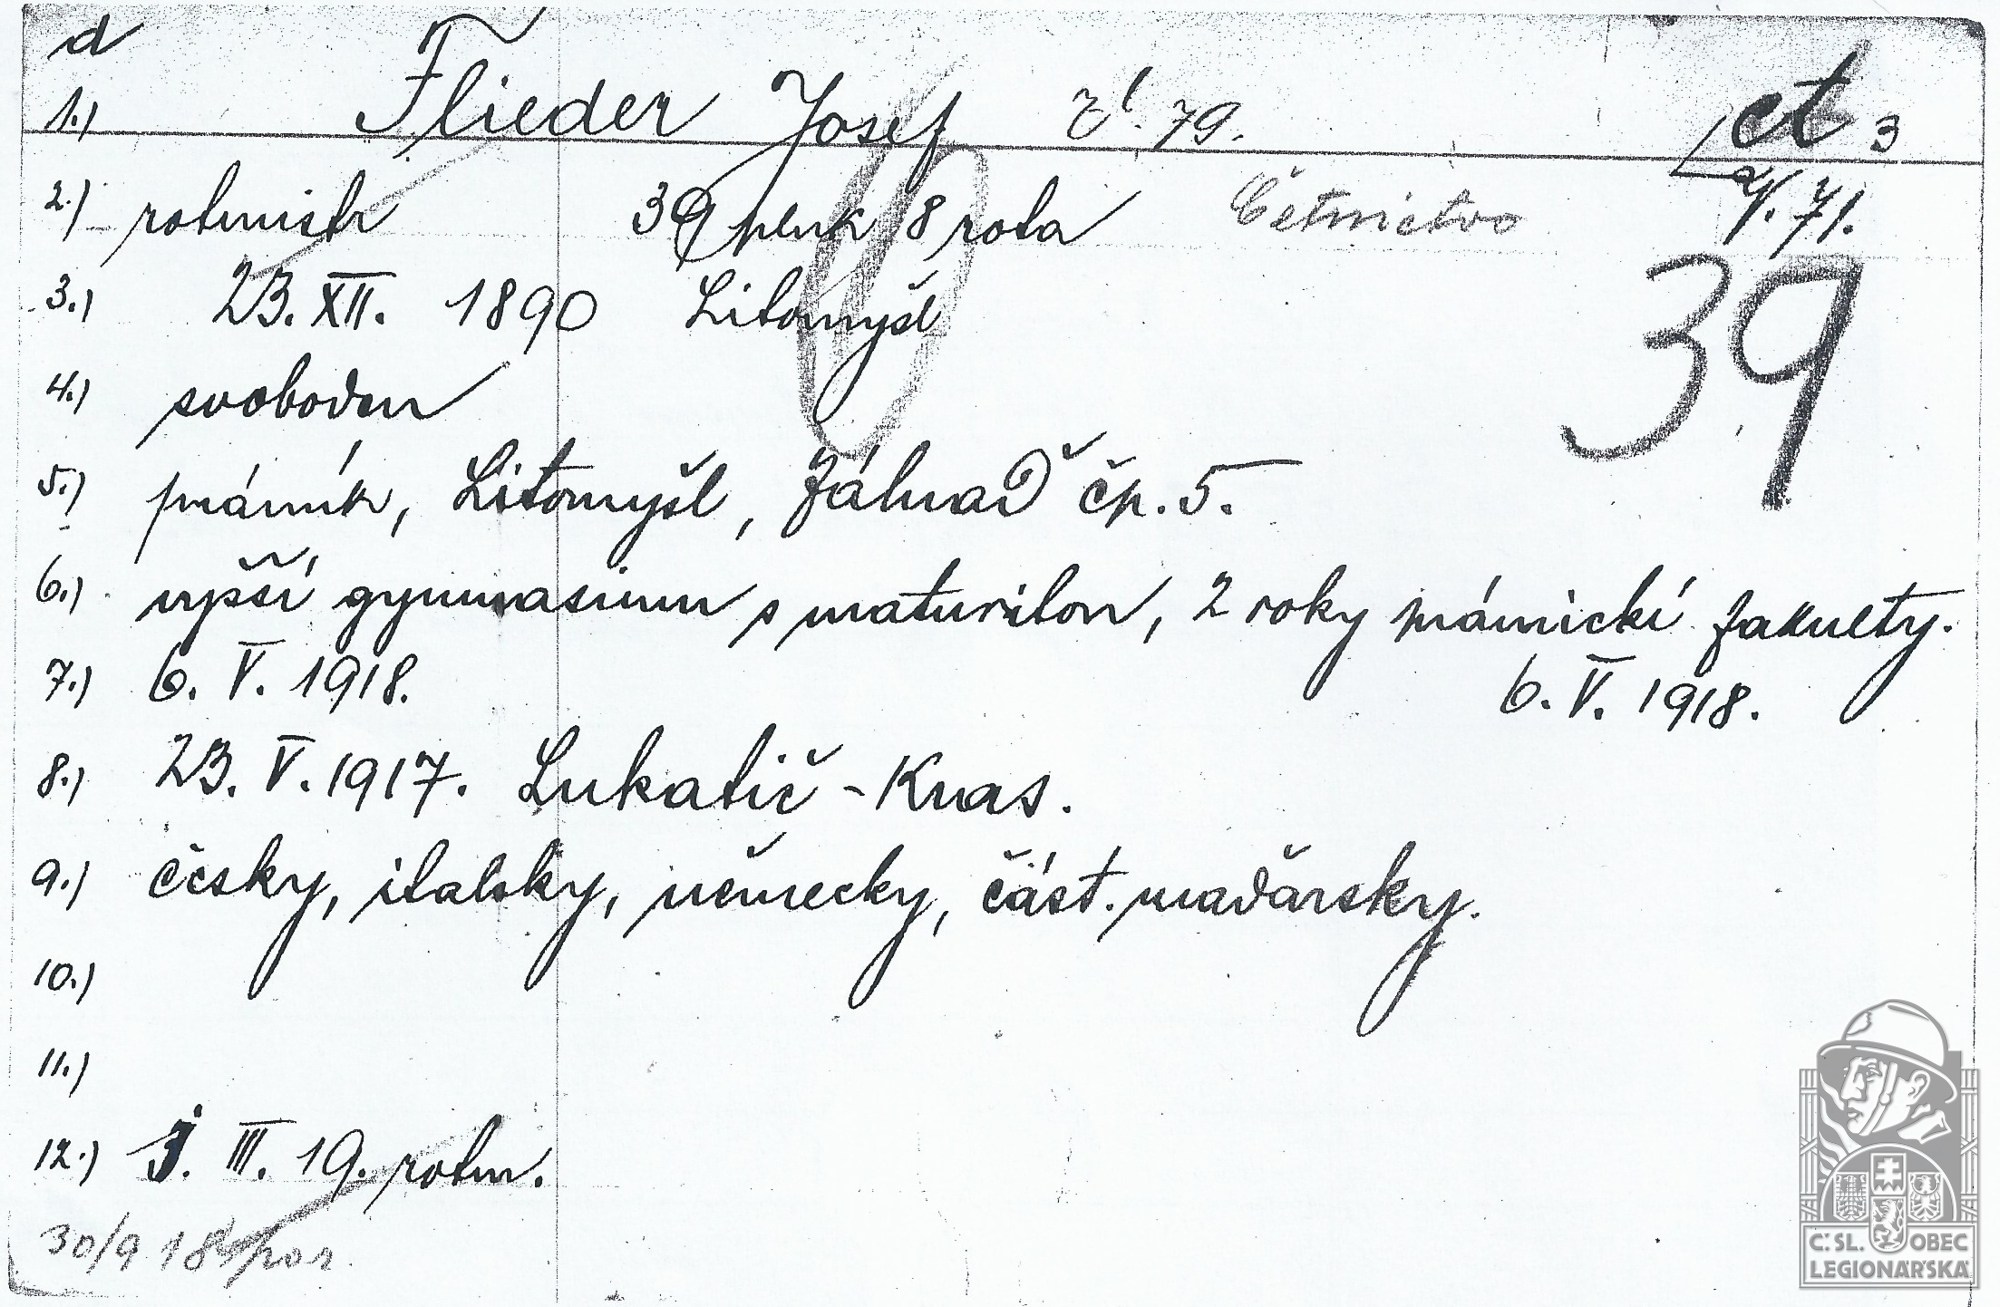 d
1.) Flieder Josef zl. 79. čt 3
2.) rotmistr 39 pluk 8 rota Četnictvo 4/. 71.
3.) 23. XII. 1890 Litomyšl 39
4.) svoboden
5.) právník, Litomyšl, Záhraď čp. 5.
6.) vyšší gymnasium s maturitou, 2 roky právnické fakulty.
7.) 6. V. 1918. 6. V. 1918.
8.) 23. V. 1917. Lukatič - Kras.
9.) česky, italsky, německy, část. maďarsky.
10.)
11.)
12.) 1. III. 19. rotm.
30/9 18
Č. SL. OBEC
LEGIONÁŘSKÁ